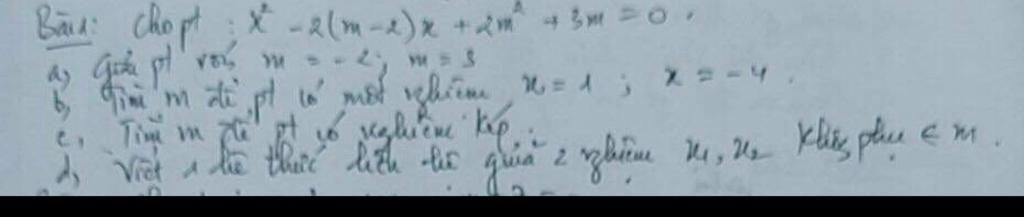 Bài 1: Cho pt : x² - 2(m-2)x + 2m² + 3m = 0.
a, Giải pt với m = -2; m = 3
b, Tìm m để pt có một nghiệm x = 1 ; x = -4.
c, Tìm m để pt có nghiệm kép.
d, Viết 1 hệ thức liên hệ giữa 2 nghiệm x₁, x₂ không phụ ∈ m.